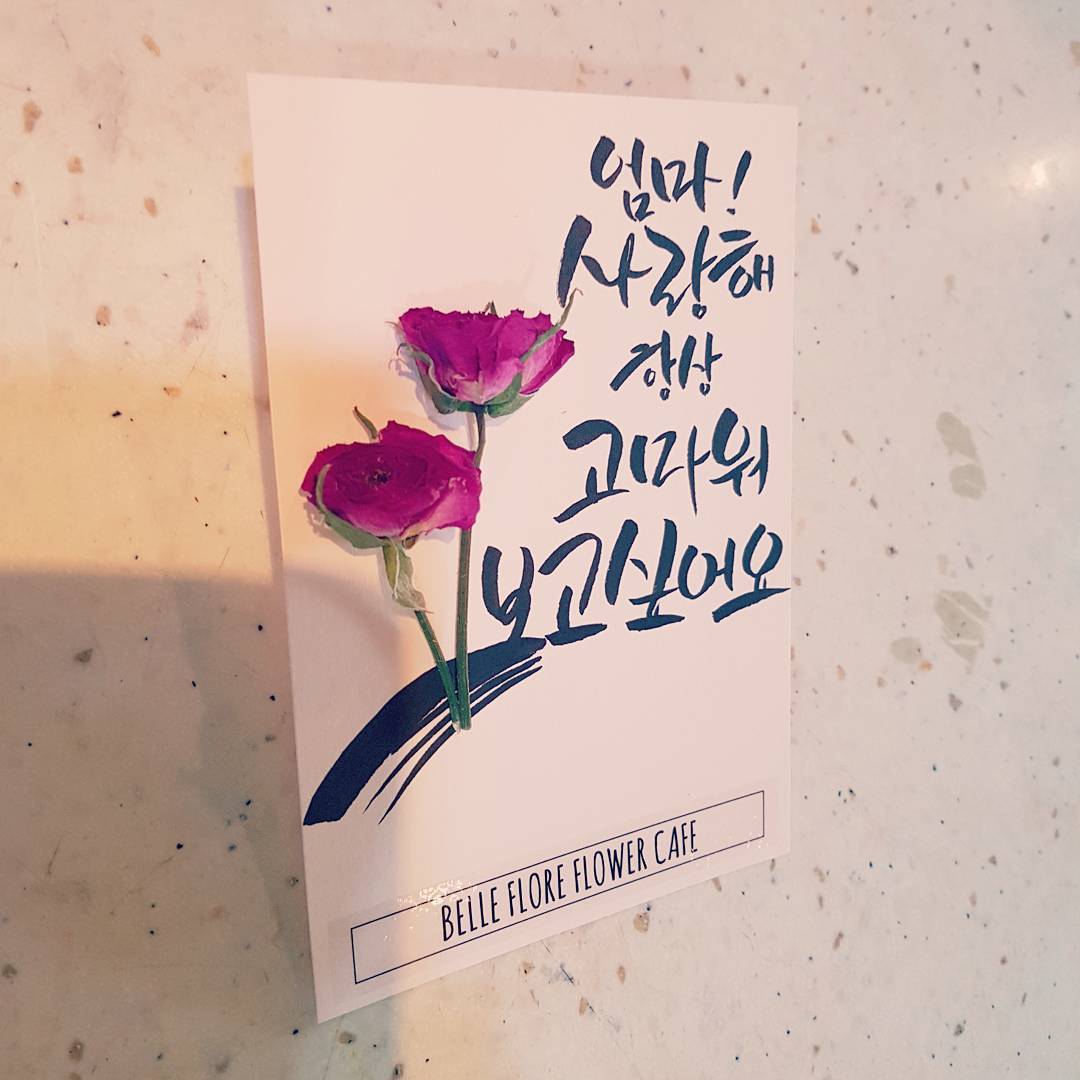 엄마!
사랑해
항상
고마워
보고싶어요
BELLE FLORE FLOWER CAFE